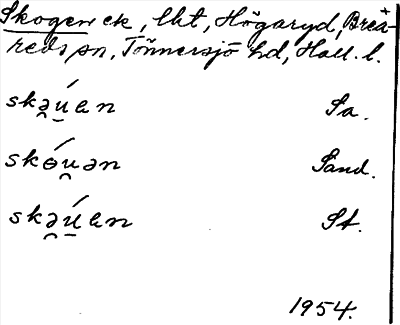 Skogen ek, lht, Högaryd, Breä-
reds sn, Tönnersjö hd, Hall. l.
skə̯ú̱en Sa.
skɵ́u̯ən Sand.
skə̯ú̱en St.
1954.